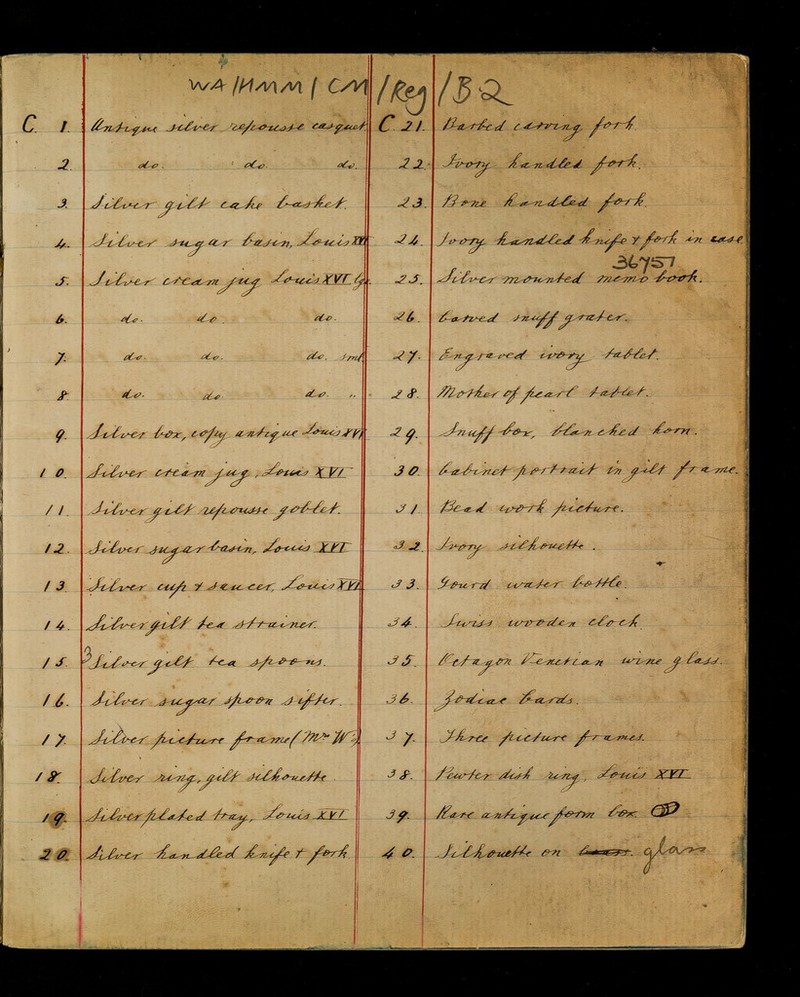 WA/HMM/CM/Reg/B.2
C. 1. Antique silver repousse casquet
2. do. do. do.
3. Silver gilt cake basket.
4. Silver sugar basin, Louis XVI
5. Silver cream jug Louis XVI lge.
6. do. do. do.
7. do. do. do. sml
8. do. do. do. "
9. Silver box, copy antique Louis XVI
10. Silver cream jug, Louis XVI
11. Silver gilt repousse goblet.
12. Silver sugar basin, Louis XVI
13 Silver cup & saucer, Louis XVI
14. Silver gilt tea strainer.
15. 3 Silver gilt tea spoons.
16. Silver sugar spoon sifter.
17. Silver picture frame (Mr. W.)
18. Silver ring, gilt silhouette
19. Silver plated tray, Louis XVI
20. Silver handled knife & fork
C. 21. Barbed carving fork
22. Ivory handled fork.
23. Bone handled fork.
24. Ivory handled knife & fork in case
36751
25. Silver mounted memo book.
26. Carved snuff grater.
27. Engraved ivory tablet.
28. Mother of pearl tablet.
29. Snuff box, blanched horn.
30. Cabinet portrait in gilt frame.
31 Bead work picture.
32. Ivory silhouette.
33. Gourd water bottle.
34. Swiss wooden clock.
35. Octagon Venetian wine glass.
36. Zodiac Cards.
37. Three picture frames.
38. Pewter dish ring. Louis XVI
39. Rare antique form box
40. Silhouette on glass